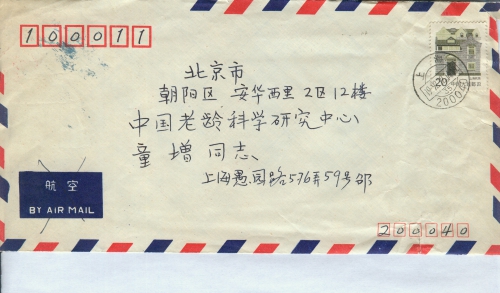 100011
北京市
朝阳区 安华西里2区12楼
中国老龄科学研究中心
童增同志
上海愚园路576弄59号邵
航空
BY AIR MAIL
200040